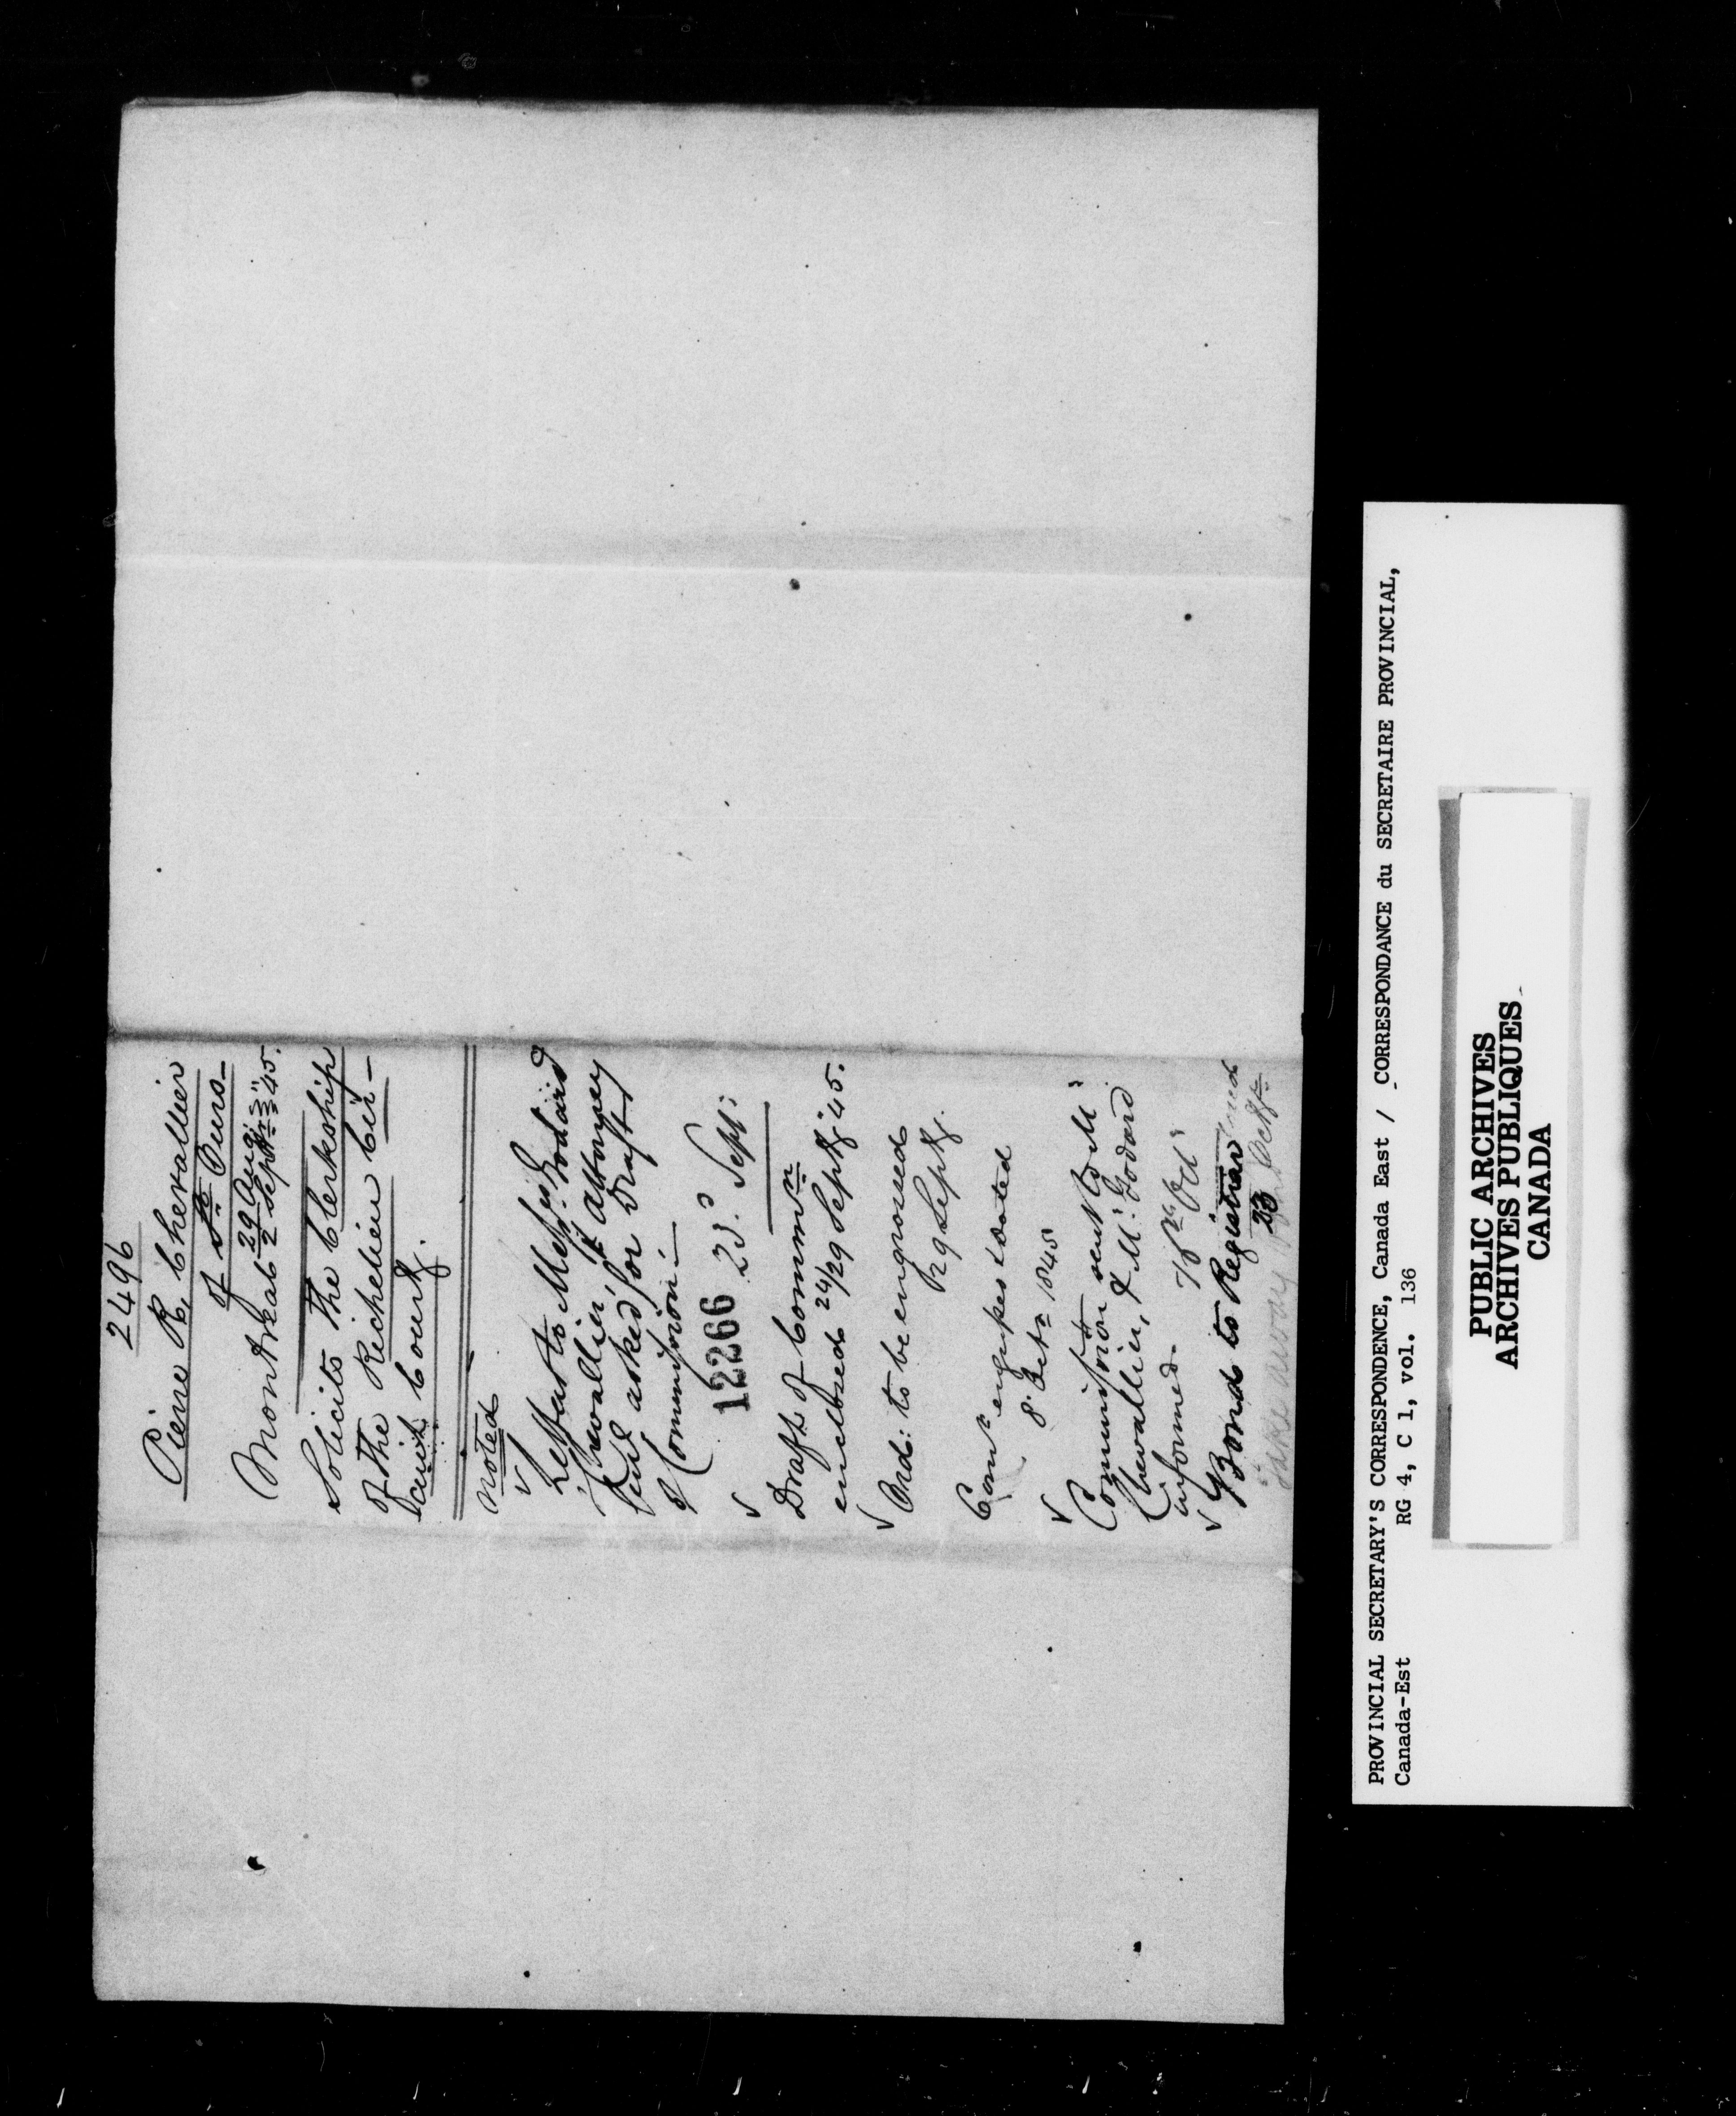 2496
Pierre R. Chevallier
of St. Ours
Montreal 29 Aug: 2 Sept: 45.
Solicits the Clerkship
of the Richelieu Cir-
cuit Court.
Noted
Let. to Messrs. Godard
Chevallier, & Attorney
Genl asked for Draft
of Commission
12266 23d. Sept:
Draft of Commn
enclosed 24/29 Septr 45.
Ord: to be engrossed
29 Septr.
Comn engrossed dated
8 Octr 1845
Commission sent to Mr
Chevallier, & Mr. Godard
informed. Oct
Bond to Registrar
23 Octr
Take away
PROVINCIAL SECRETARY'S CORRESPONDENCE, Canada East / CORRESPONDANCE du SECRETAIRE PROVINCIAL,
Canada-Est RG 4, C 1, vol. 136
PUBLIC ARCHIVES
ARCHIVES PUBLIQUES
CANADA